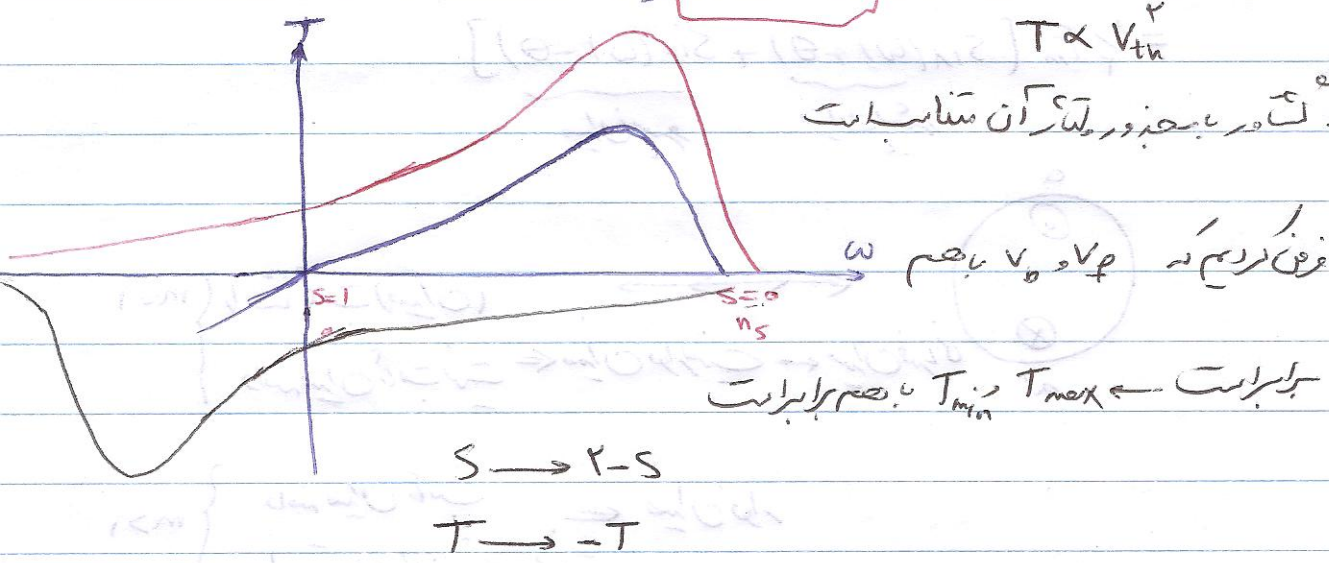 T
T ∝ V_th^۲
گشتاور با مجذور ولتاژ آن متناسب است
ω
فرض کردیم که V_f و V_b باهم
S=1
۰
S=۰
n_s
برابر است ← T_max و T_min باهم برابر است
S → ۲-S
T → -T